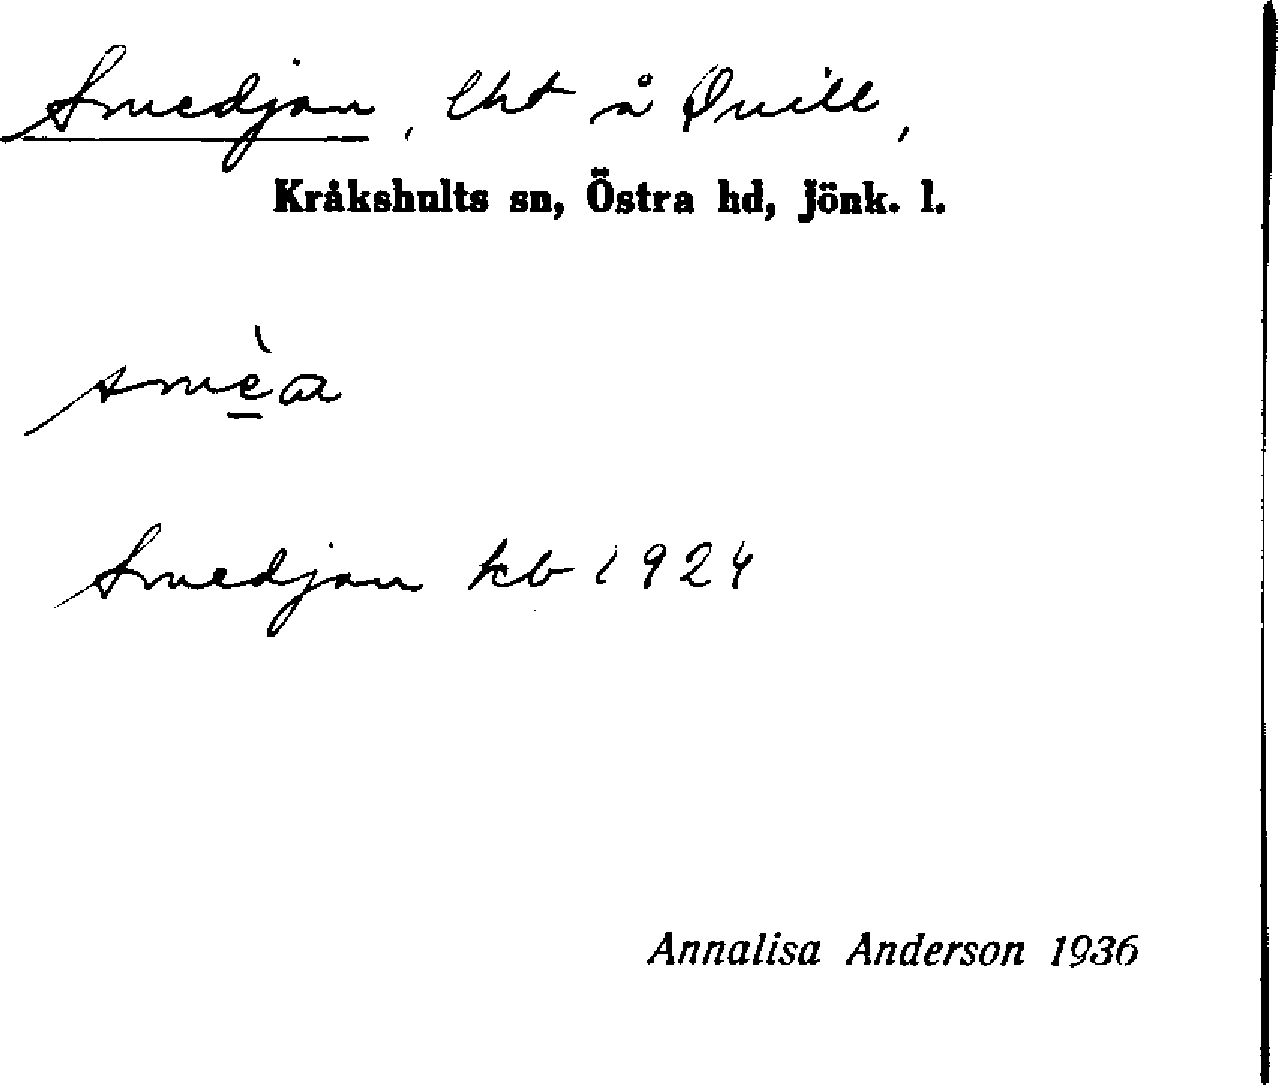 Smedjan, lht å Qvill,
Kråkshults sn, Östra hd, Jönk. l.
Smedjan kb 1924
Annalisa Anderson 1936